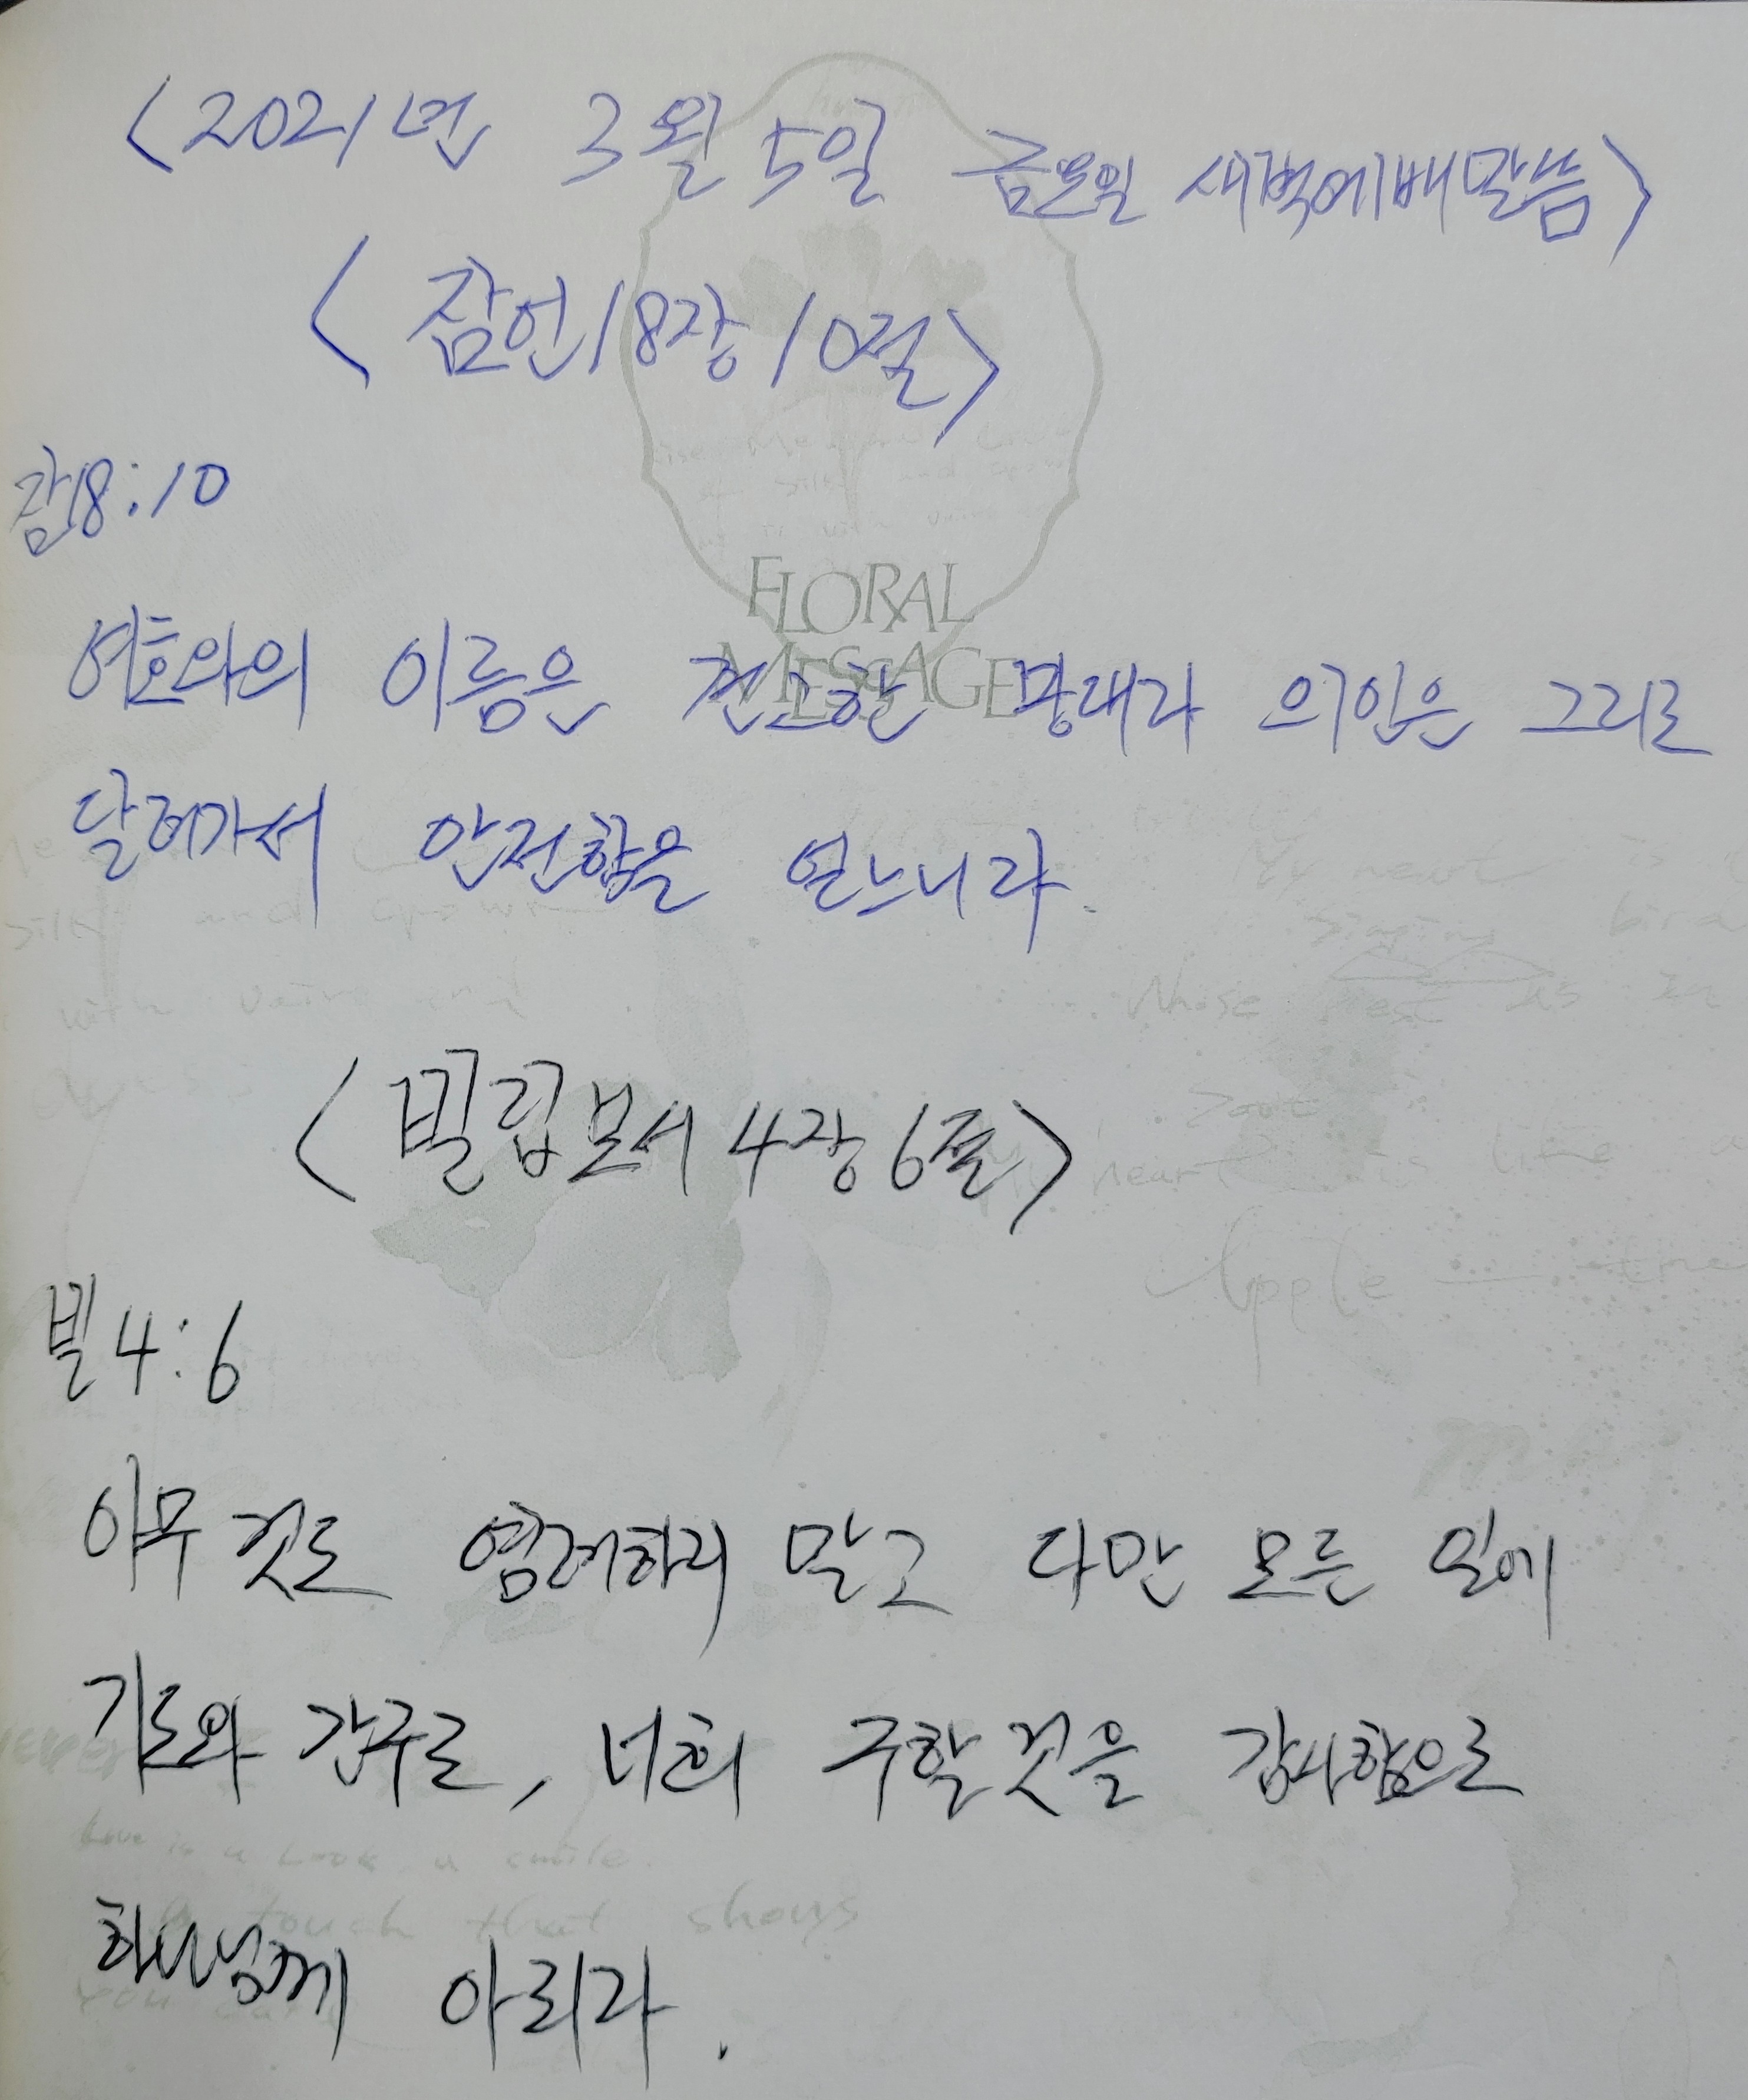 <2021년 3월 5일 금요일 새벽예배말씀>
<잠언18장10절>
잠18:10
FLORAL
MESSAGE
여호와의 이름은 견고한 망대라 의인은 그리로
달려가서 안전함을 얻느니라.
<빌립보서4장6절>
빌4:6
아무것도 염려하지 말고 다만 모든 일에
기도와 간구로, 너희 구할것을 감사함으로
하나님께 아뢰라.